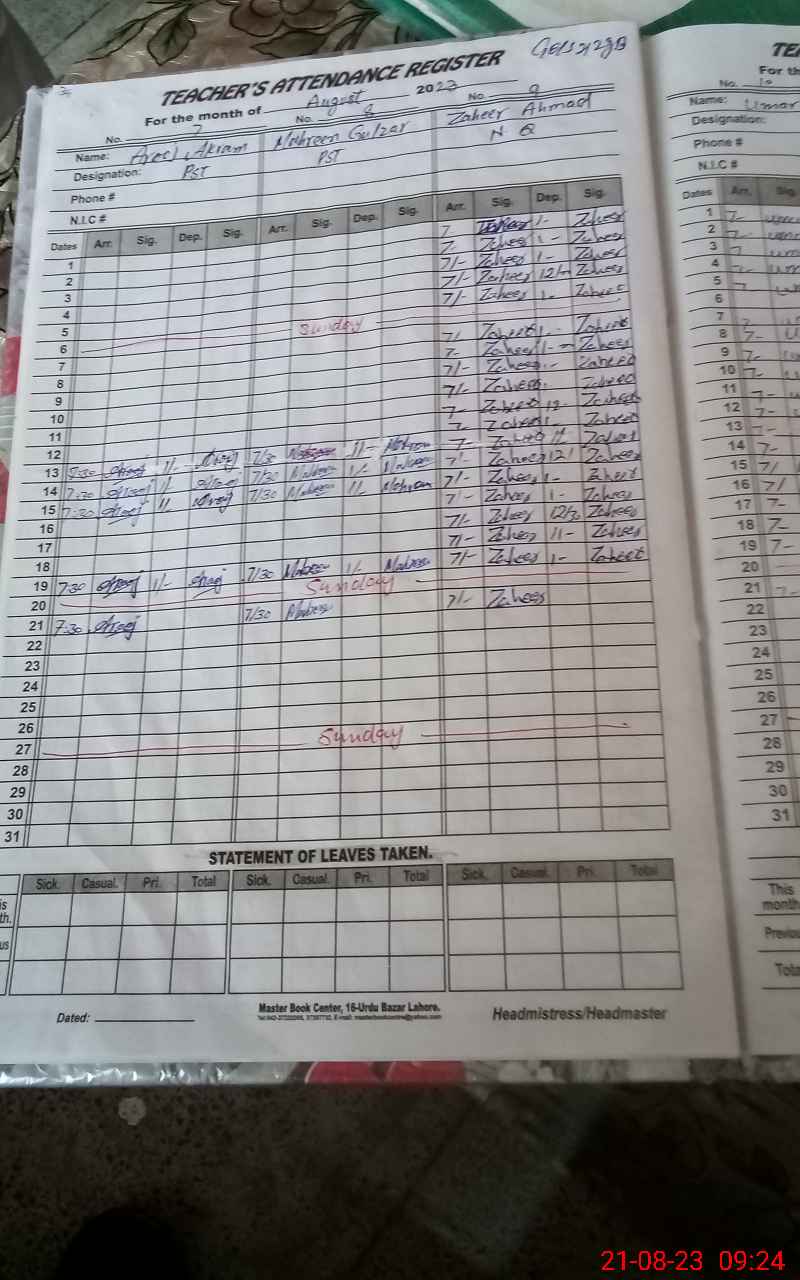 TEACHER'S ATTENDANCE REGISTER
For the month of August 2023
No. 7 No. 8 No. 9
Name: Areej Akram Mahreen Gulzar Zaheer Ahmad
Designation: PST PST N Q
Phone #
N.I.C #
Dates Arr. Sig. Dep. Sig. Arr. Sig. Dep. Sig. Arr. Sig. Dep. Sig.
1 7 Zaheer 1- Zaheer
2 7- Zaheer 1- Zaheer
3 7/- Zaheer 1- Zaheer
4 7/- Zaheer Zaheer
5 7/- Zaheer 1- Zaheer
6 Sunday
7 7/- Zaheer 1- Zaheer
8 7- Zaheer 1- Zaheer
9 7/- Zaheer 1- Zaheer
10 7/- Zaheer Zaheer
11 7- Zaheer 12- Zaheer
12 7- Zaheer 1- Zaheer
13 7:30 Areej 11- Areej 7/30 Mahreen 11- Mahreen 7- Zaheer 11 Zaheer
14 7:30 Areej 11 Areej 7/30 Mahreen 11- Mahreen 7- Zaheer 12/ Zaheer
15 7:30 Areej 11 Areej 7/30 Mahreen 11 Mahreen 7/- Zaheer 1- Zaheer
16 7/- Zaheer 1- Zaheer
17 7/- Zaheer 12/30 Zaheer
18 7/- Zaheer 11- Zaheer
19 7:30 Areej 1/- Areej 7/30 Mahreen 1/- Mahreen 7/- Zaheer 1- Zaheer
20 Sunday
21 7:30 Areej 7/30 Mahreen 7/- Zaheer
22
23
24
25
26
27 Sunday
28
29
30
31
STATEMENT OF LEAVES TAKEN.
Sick. Casual. Pri. Total Sick. Casual. Pri. Total Sick. Casual. Pri. Total
is
th.
us
Dated:
Master Book Center, 16-Urdu Bazar Lahore.
Headmistress/Headmaster
TEA
For th
No. 10
Name: Umar
Designation:
Phone #
N.I.C #
Dates Arr. Sig.
1 7-
2 7-
3 7
4 7-
5 7
6
7 7-
8 7-
9 7-
10 7-
11 7-
12 7-
13 7-
14 7-
15 7/
16 7/
17 7-
18 7-
19 7-
20
21 7-
22
23
24
25
26
27
28
29
30
31
This
month
Previou
Tota
21-08-23 09:24